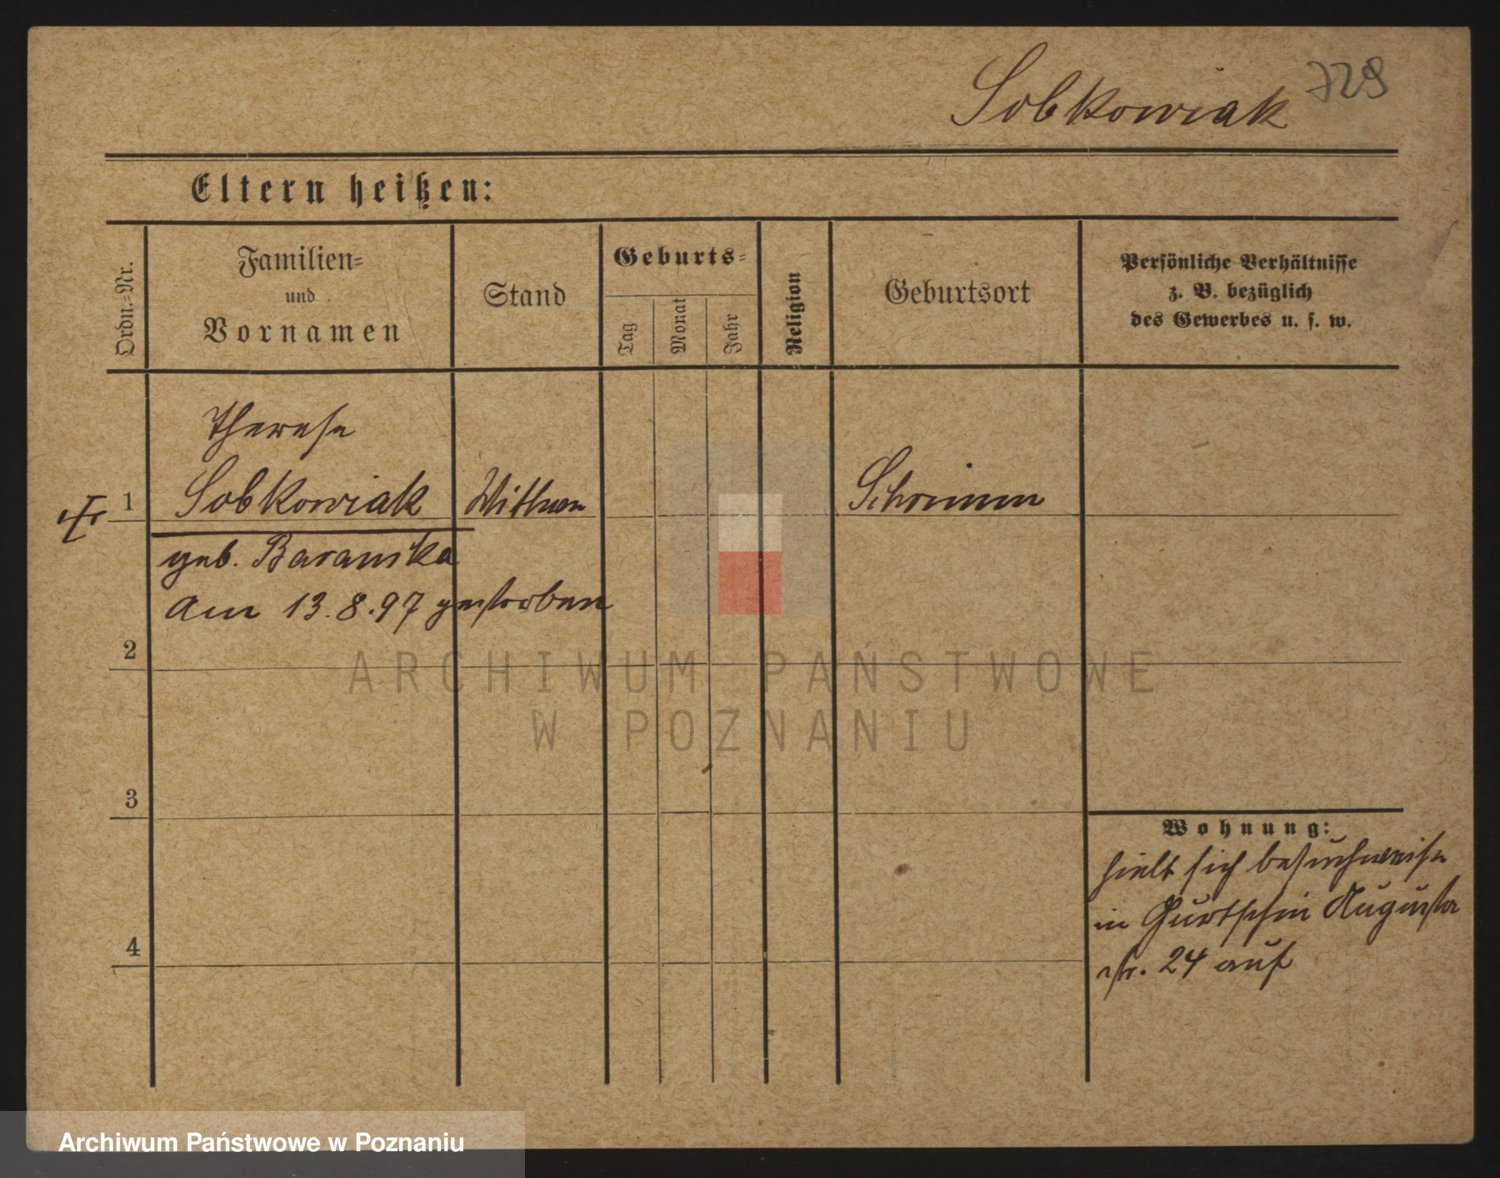 Sobkowiak 729
Eltern heißen:
Ordn.-Nr.
Familien-
und
Vornamen
Stand
Geburts-
Tag
Monat
Jahr
Religion
Geburtsort
Persönliche Verhältnisse
z. B. bezüglich
des Gewerbes u. s. w.
Therese
1 Sobkowiak Wittwe Schrimm
geb. Baranska
am 13.8.97 gestorben
2
ARCHIWUM PAŃSTWOWE
W POZNANIU
3
Wohnung:
hielt sich besuchweise
in Gurtschin Augusta
str. 24 auf
4
Archiwum Państwowe w Poznaniu